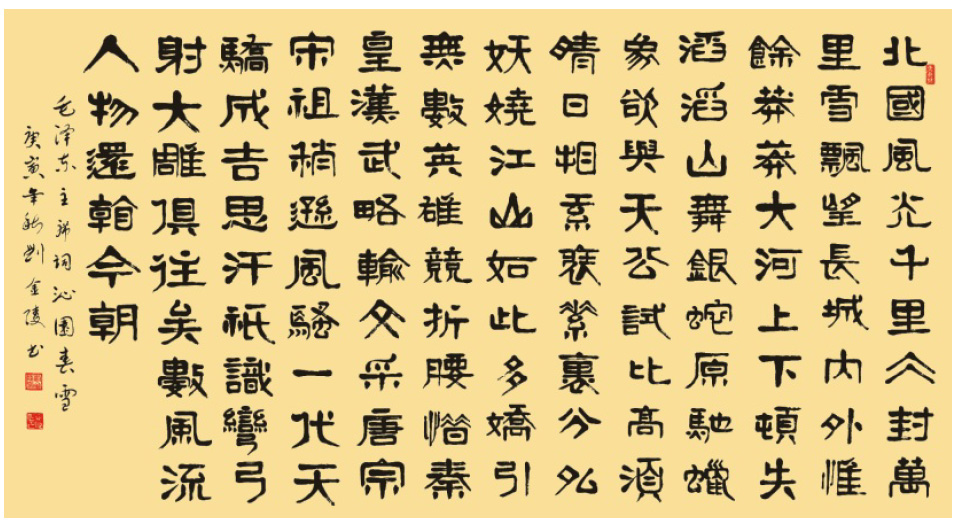 北國風光千里仌封萬
里雪飄望長城內外惟
餘莽莽大河上下頓失
滔滔山舞銀蛇原馳蠟
象欲與天公試比高須
晴日看紅裝素裹分外
妖嬈江山如此多嬌引
無數英雄競折腰惜秦
皇漢武略輸文采唐宗
宋祖稍遜風騷一代天
驕成吉思汗祇識彎弓
射大雕俱往矣數風流
人物還看今朝
毛泽东主席词沁園春雪
庚寅年秋劉金陵书